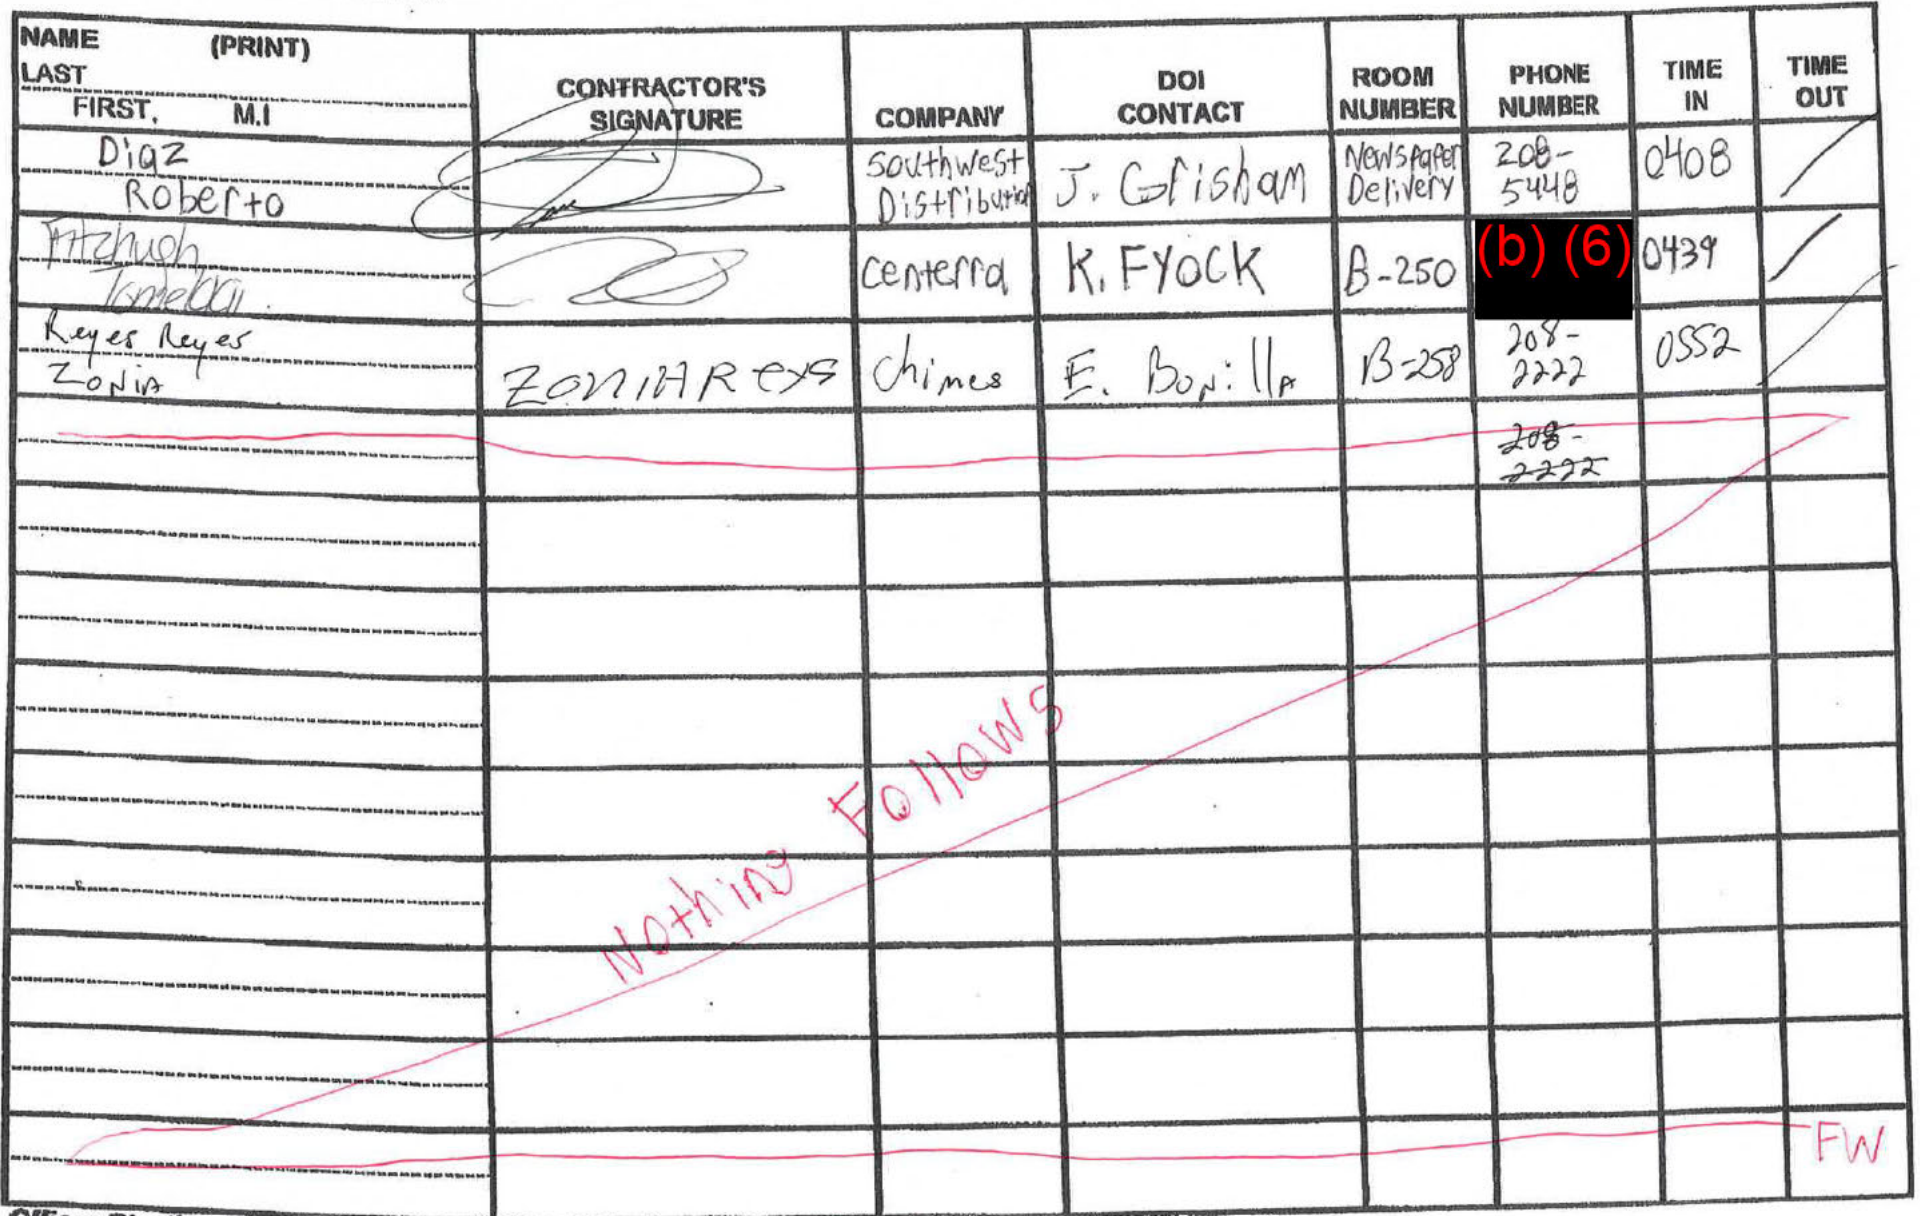 NAME (PRINT)
LAST
FIRST, M.I
CONTRACTOR'S
SIGNATURE
COMPANY
DOI
CONTACT
ROOM
NUMBER
PHONE
NUMBER
TIME
IN
TIME
OUT
Diaz
Roberto
Southwest
Distribution
J. Grisham
Newspaper
Delivery
208-
5448
0408
Fitzhugh
Centerra
K. FYOCK
B-250
(b) (6)
0439
Reyes Reyes
ZONIA
ZONIA Reys
Chimes
E. Bonilla
B-258
208-
2222
0552
208-
2222
Nothing Follows
FW